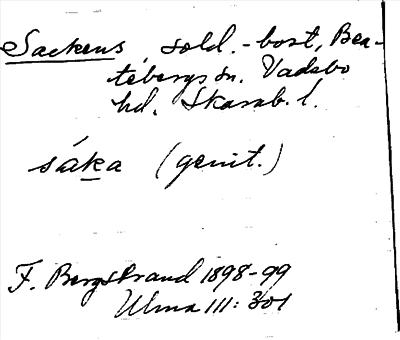 Sackens, sold.-bost, Bea-
tebergs sn. Vadsbo
hd. Skarab. l.
sáka (genit.)
F. Bergstrand 1898-99
Ulma 111: 301